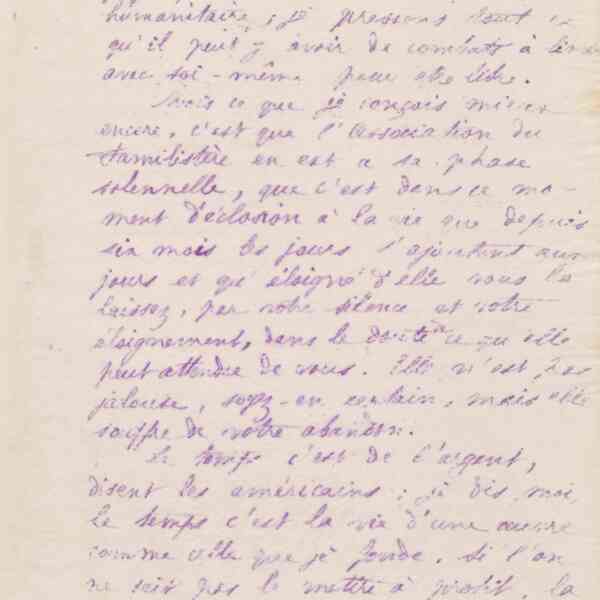 humanitaire ; je pressens tout ce
qu'il peut y avoir de combats à livrer
avec soi-même pour être libre.
Mais ce que je conçois mieux
encore, c'est que l'association du
Familistère en est à sa phase
solennelle, que c'est dans ce mo-
ment d'éclosion à la vie que depuis
six mois les jours s'ajoutent aux
jours et qu'éloigné d'elle vous la
laissez, par votre silence et votre
éloignement, dans le doute de ce qu'elle
peut attendre de vous. Elle n'est pas
jalouse, soyez-en certain, mais elle
souffre de votre abandon.
Le temps c'est de l'argent,
disent les américains ; je dis moi,
le temps c'est la vie d'une œuvre
comme celle que je fonde. Si l'on
ne sait pas le mettre à profit, la